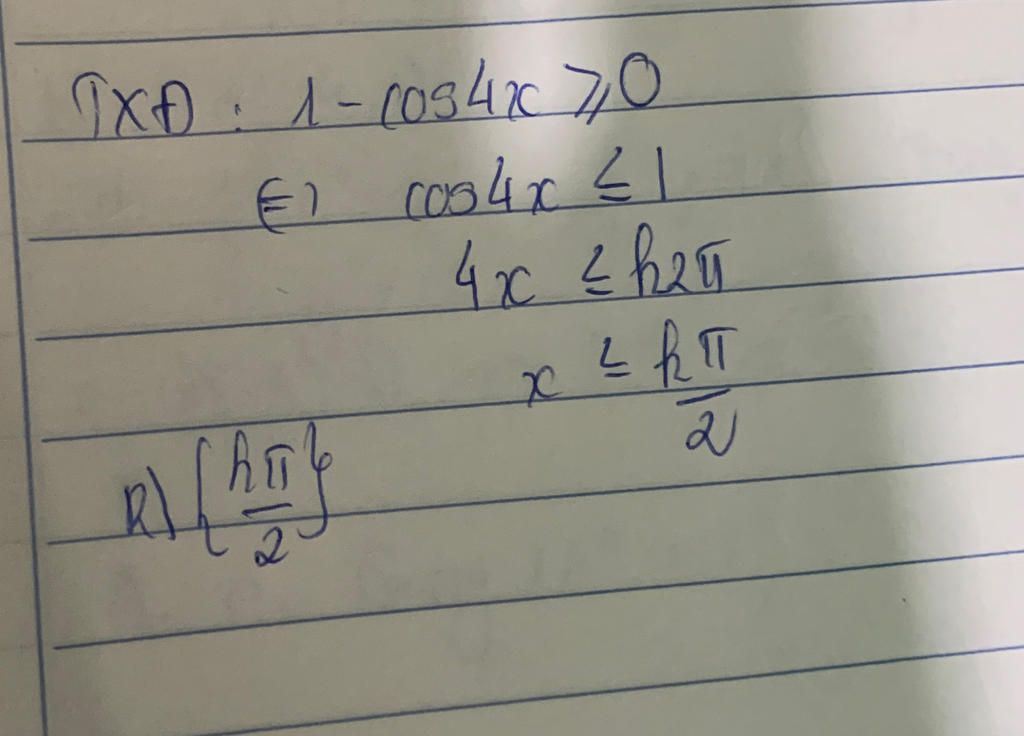 TXĐ : 1 - cos4x ⩾ 0
⇔ cos4x ≤ 1
4x ≤ k2π
x ≤ kπ/2
R\{kπ/2}